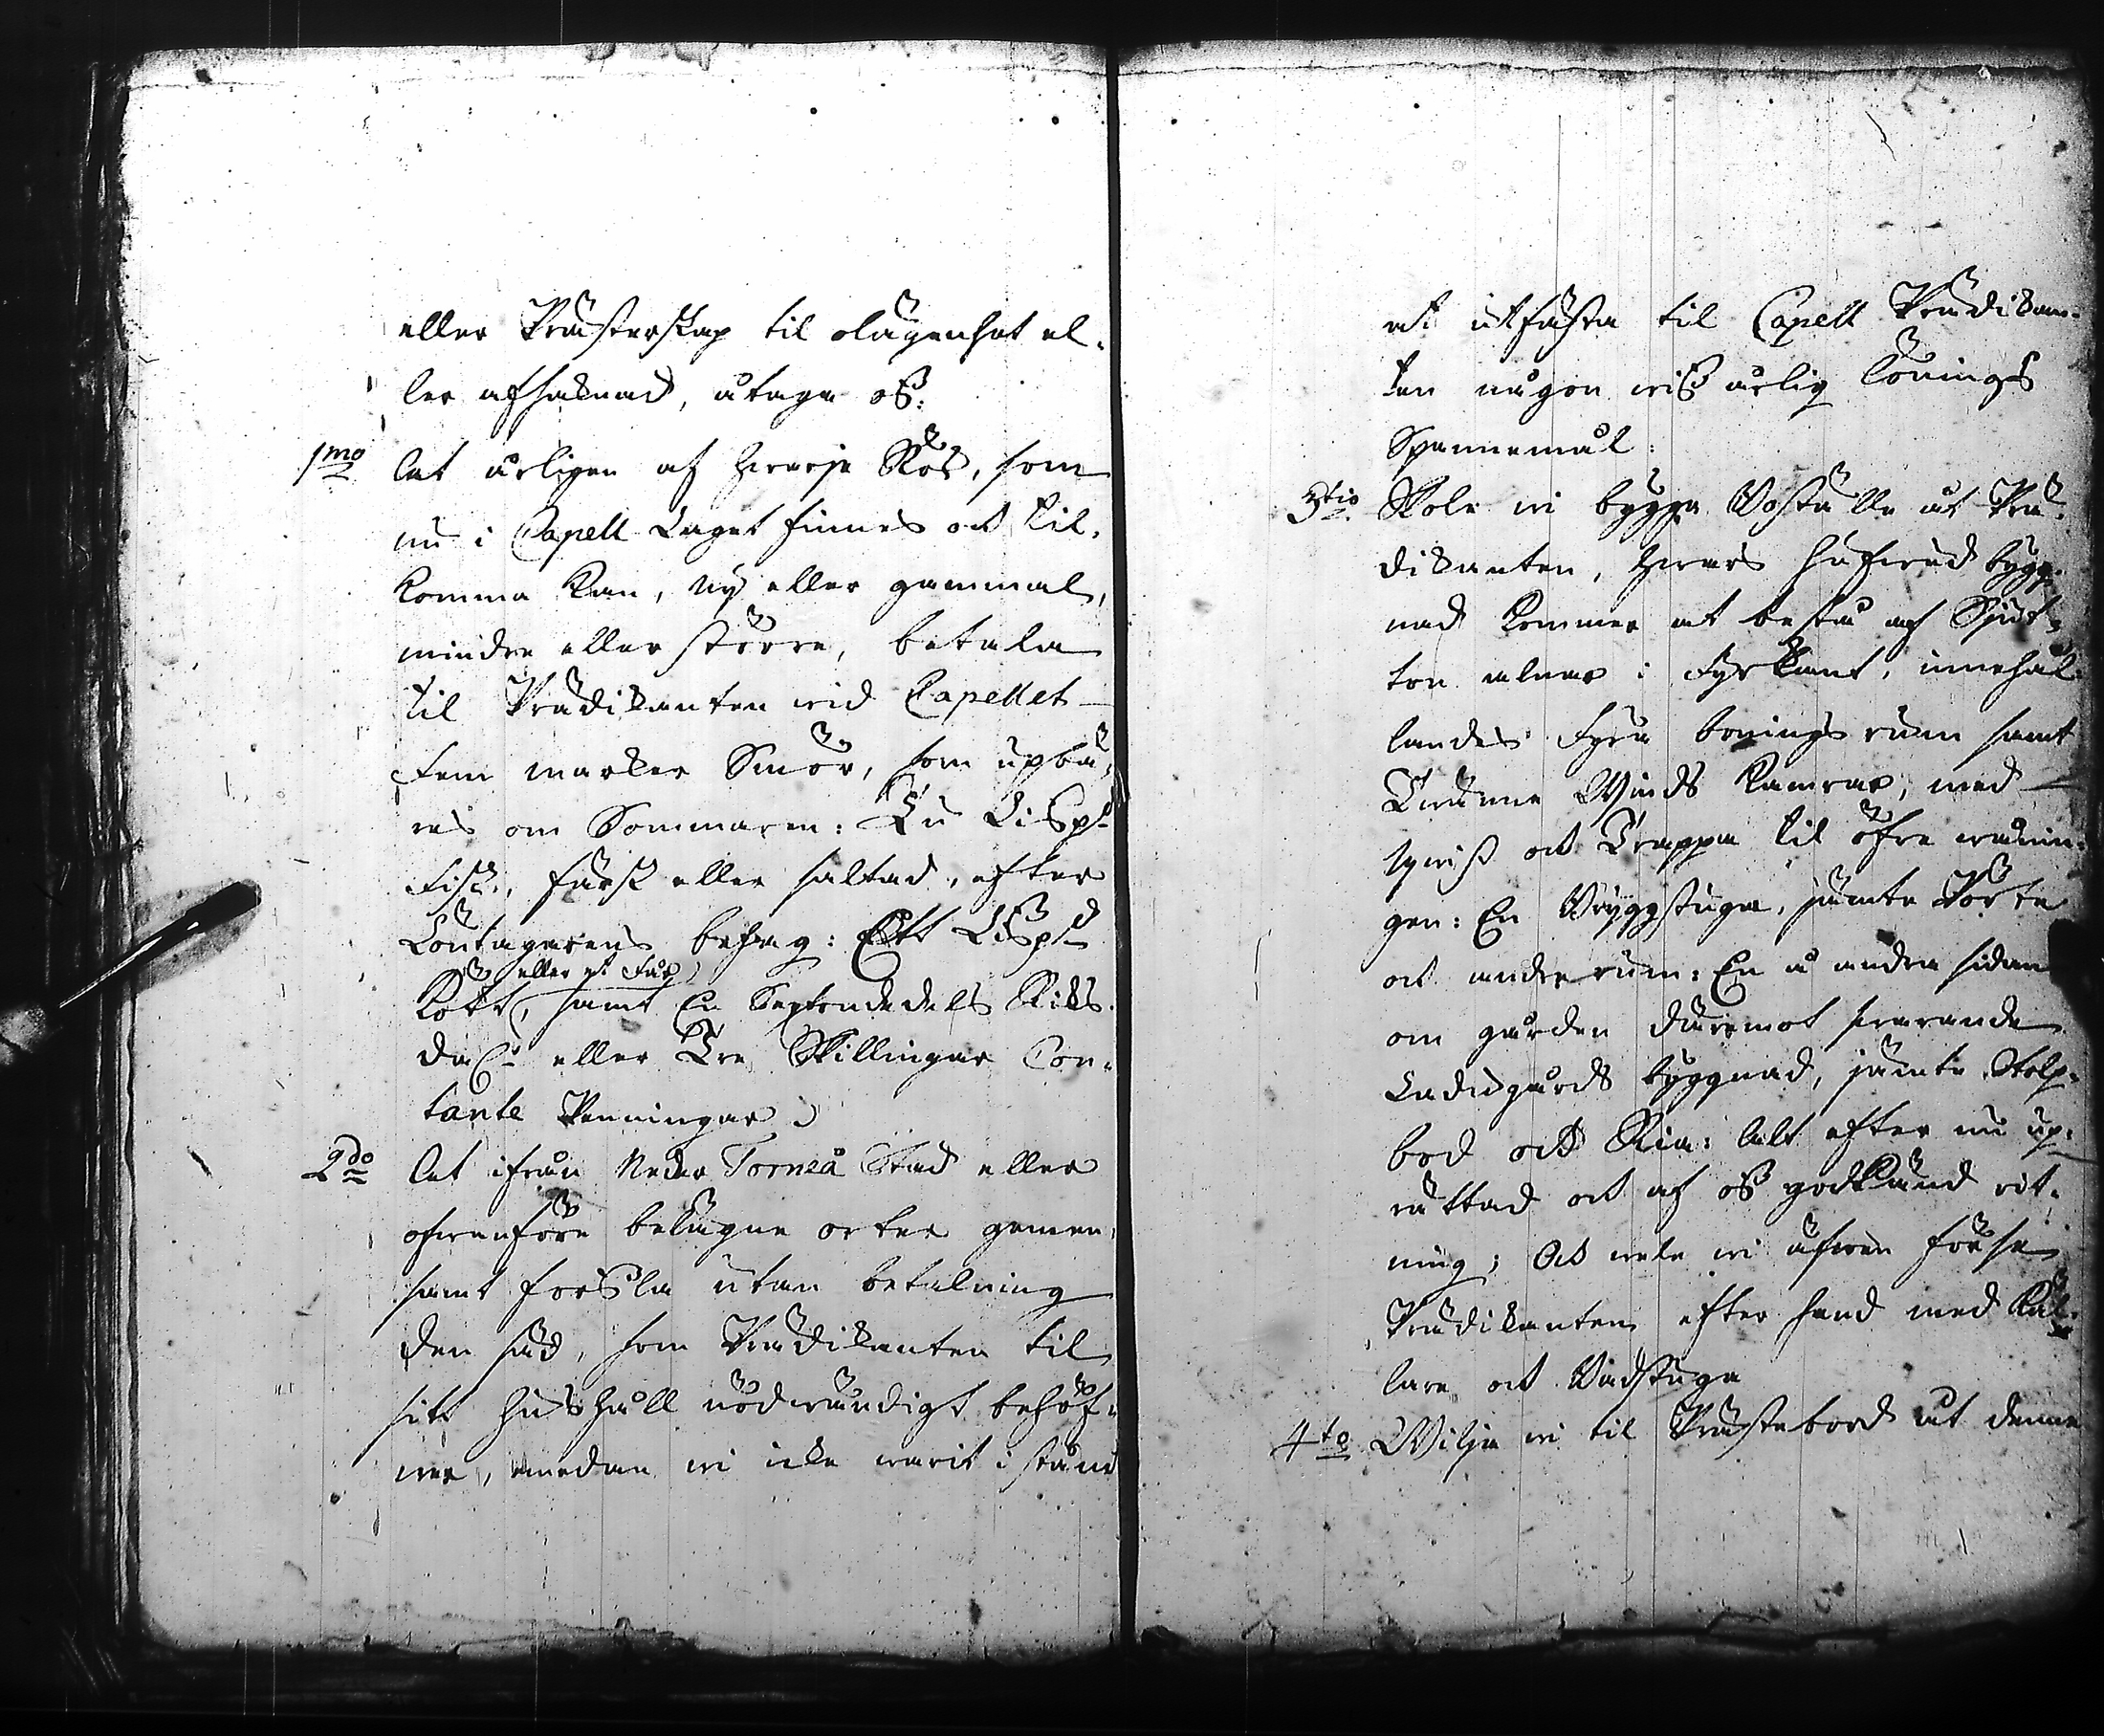 eller Prästerskap til olägenhet el-
ler afsaknad, åtaga oß:
1mo At årligen af hwarje Rök, som
nu i Capell Laget finnes och til-
komma kan, ny eller gammal,
mindre eller större, betala
til Prädikanten wid Capellet
Fem marker Smör, som upbä-
res om Sommaren: Ett Lispd
Fisk, färsk eller saltad, efter
Löntagarens behag: Ett Lispd
eller et Får
Kött, samt En Sextondedels Riks-
dal. eller Tre Skillingar Con-
tante Penningar
2do At ifrån Neder Torneå Stad eller
ofwanföre belägne orter gemen-
samt forsla utan betalning
den säd, som Prädikanten til
sitt hushåll nödwändigt behöf-
wer, emedan wi icke warit i stånd
at utfästa til Capell Prädikan-
ten någon wiß årlig Lönings
Spannemål:
3tio Skole wi bygga Boställe åt Prä-
dikanten, hwars hufwud bygg-
nad kommer at bestå af Sjut-
ton alnar i Fyrkant, innehål-
landes Fyra bonings rum samt
Twänne Winds Kamrar, med
spris och Trappa til öfre wånin-
gen: En Bryggstuga, jämte Pörte
och andre rum: En å andra sidan
om gården däremot swarande
Ladugårds byggnad, jämte Stolp-
bod och Ria: Alt efter nu up-
rättad och af oß godkänd rit-
ning; Och wele wi äfwen förse
Prädikanten efter hand med Käl-
lare och Badstuga
4to Wilja wi til Prästebord åt denne